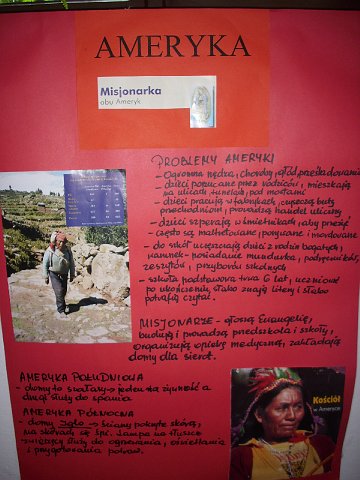 AMERYKA
Misjonarka
obu Ameryk
PROBLEMY AMERYKI
- Ogromna nędza, choroby, głód, prześladowania
- dzieci porzucane przez rodziców, mieszkają
na ulicach, tunelach, pod mostami
- dzieci pracują w fabrykach, czyszczą buty
przechodniom, prowadzą handel uliczny
- dzieci szperają w śmietnikach, aby przeżyć
- często są maltretowane, porywane i mordowane
- do szkół uczęszczają dzieci z rodzin bogatych,
warunek - posiadanie mundurka, podręczników,
zeszytów, przyborów szkolnych
- szkoła podstawowa trwa 6 lat, uczniowie
po ukończeniu słabo znają litery i słabo
potrafią czytać.
MISJONARZE - głoszą Ewangelię,
budują i prowadzą przedszkola i szkoły,
organizują opiekę medyczną, zakładają
domy dla sierot.
AMERYKA POŁUDNIOWA
- domy to szałasy - jeden na żywność a
drugi służy do spania
AMERYKA PÓŁNOCNA
- domy Iglo - ściany pokryte skórą,
na skórach się śpi. Lampa na tłuszcz
służy do ogrzewania, oświetlania
i przygotowania potraw.
Kościół
w Ameryce